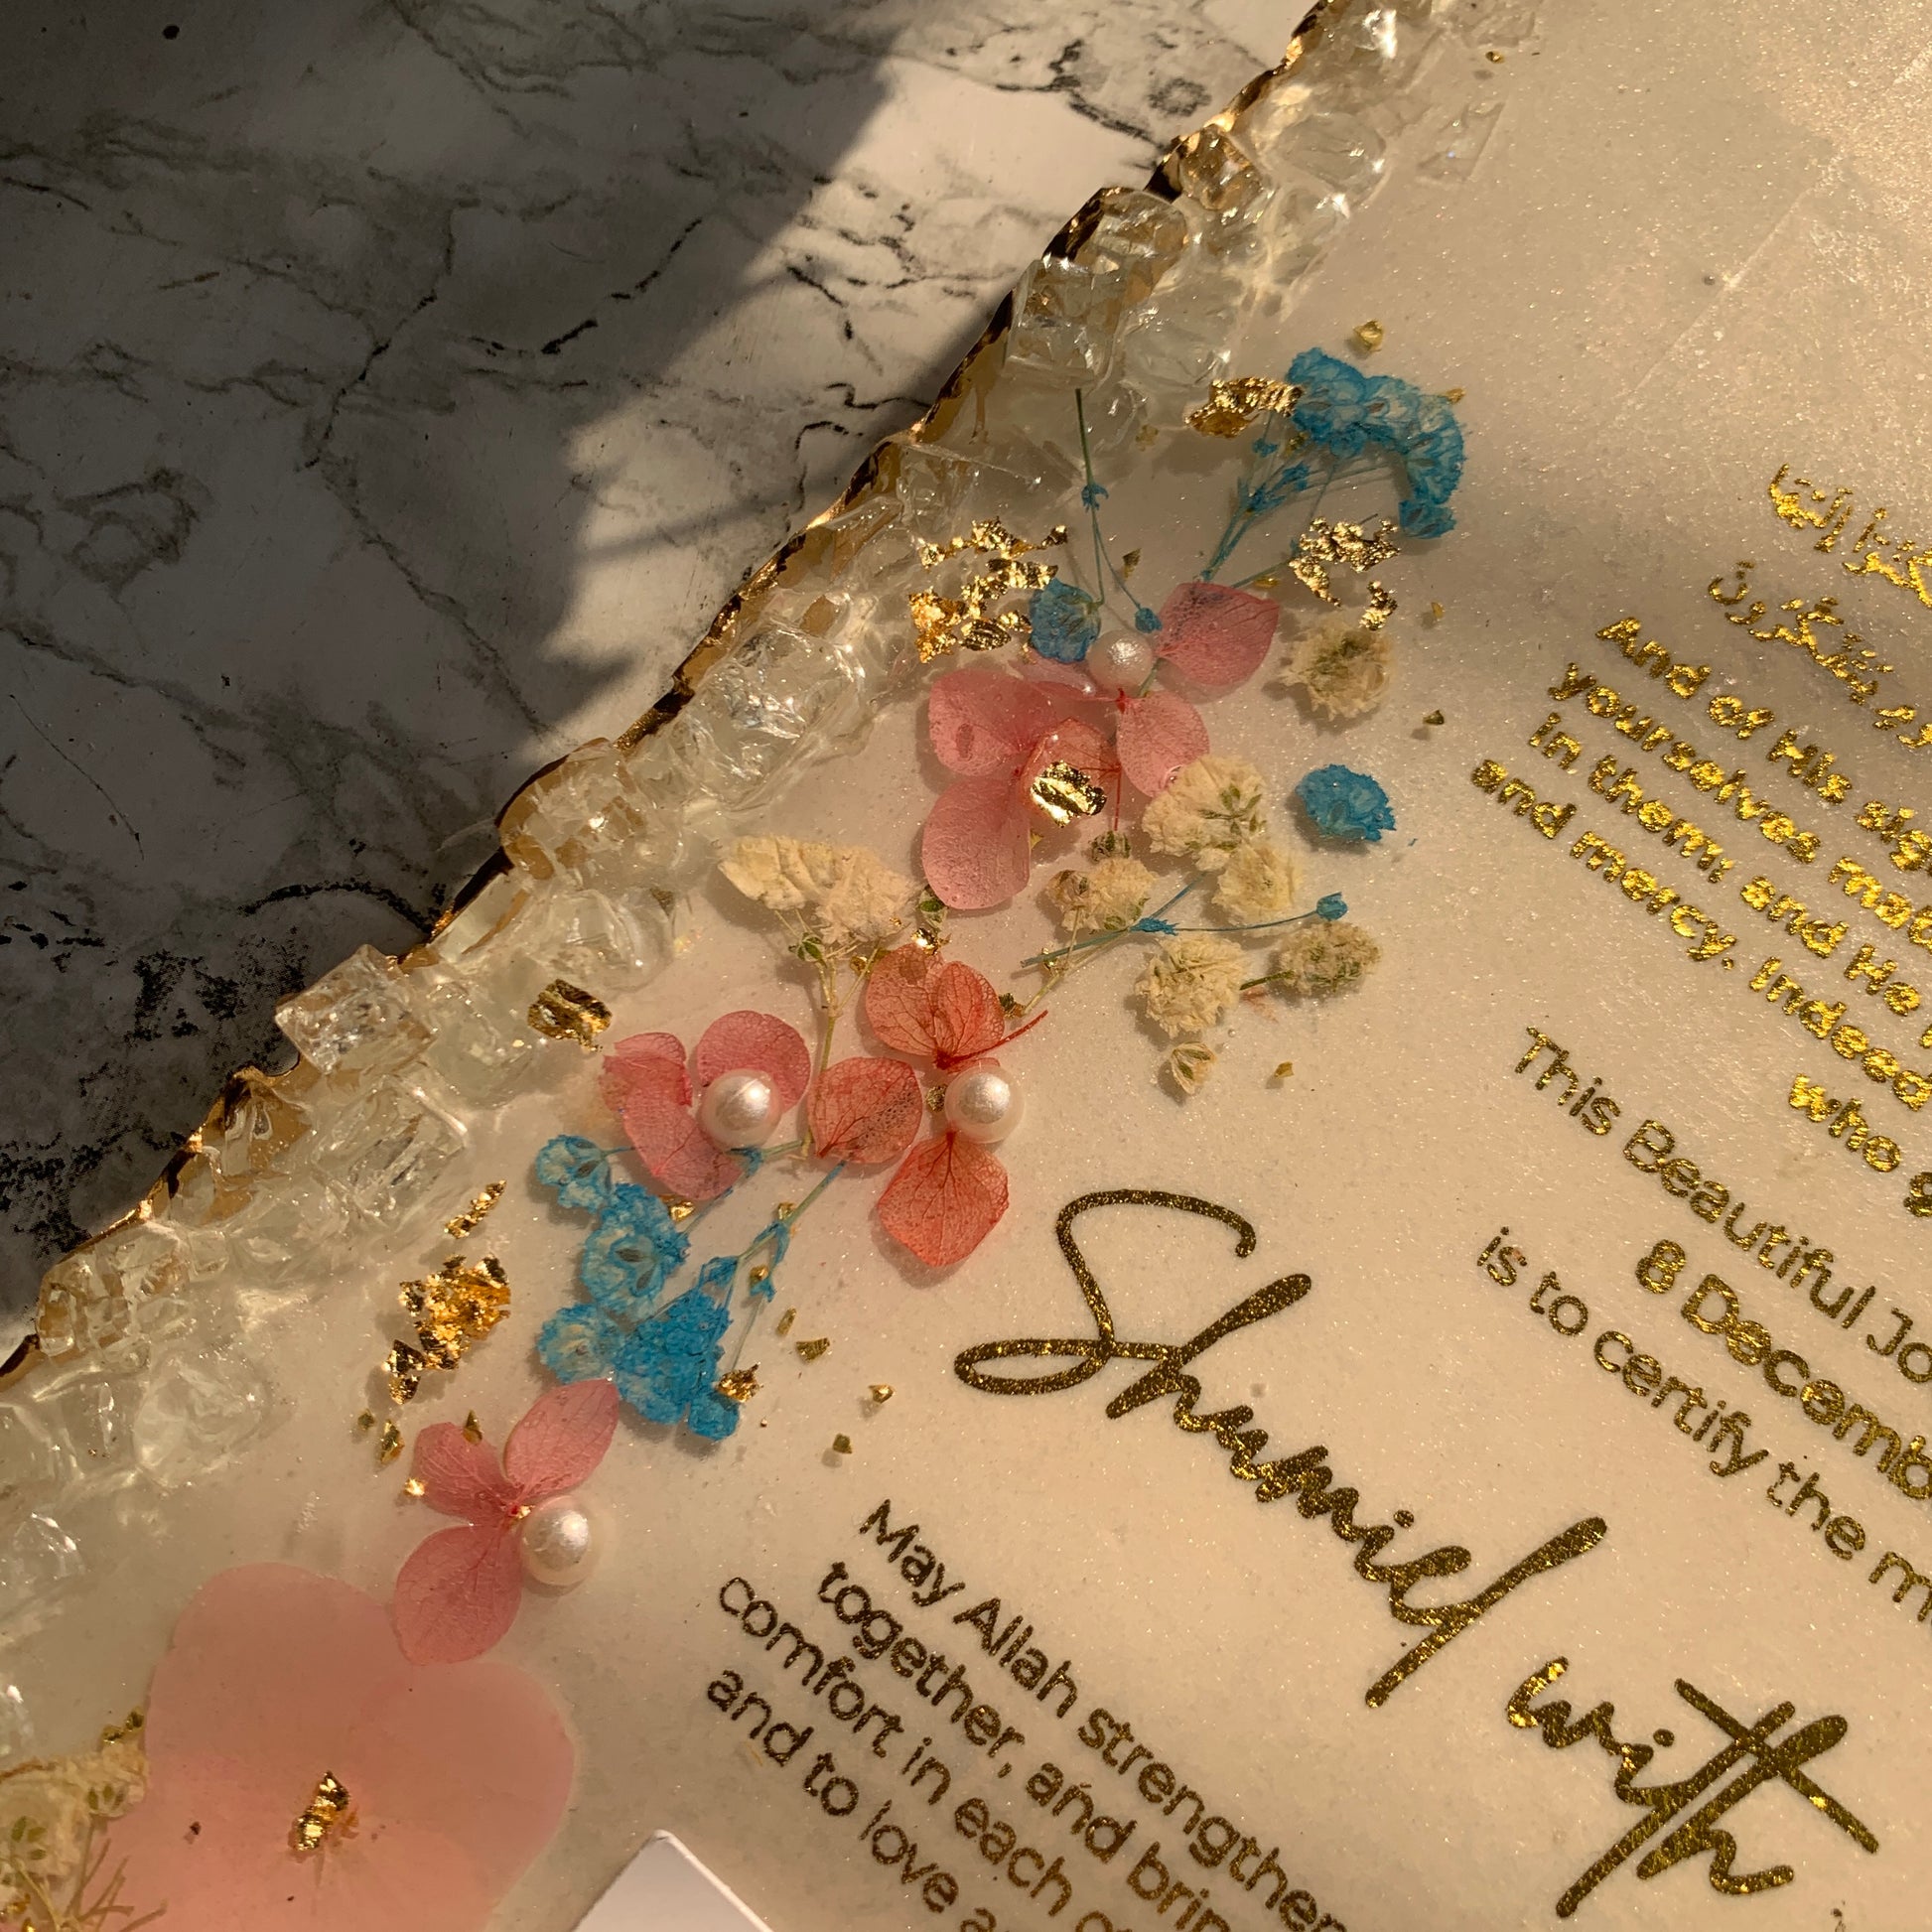 And of His sig
yourselves mat
in them; and He
and mercy. Indeed
who g
This Beautiful Jo
8 Decemb
is to certify the m
Shumiel with
May Allah strengthen
together, and brin
comfort in each o
and to love a